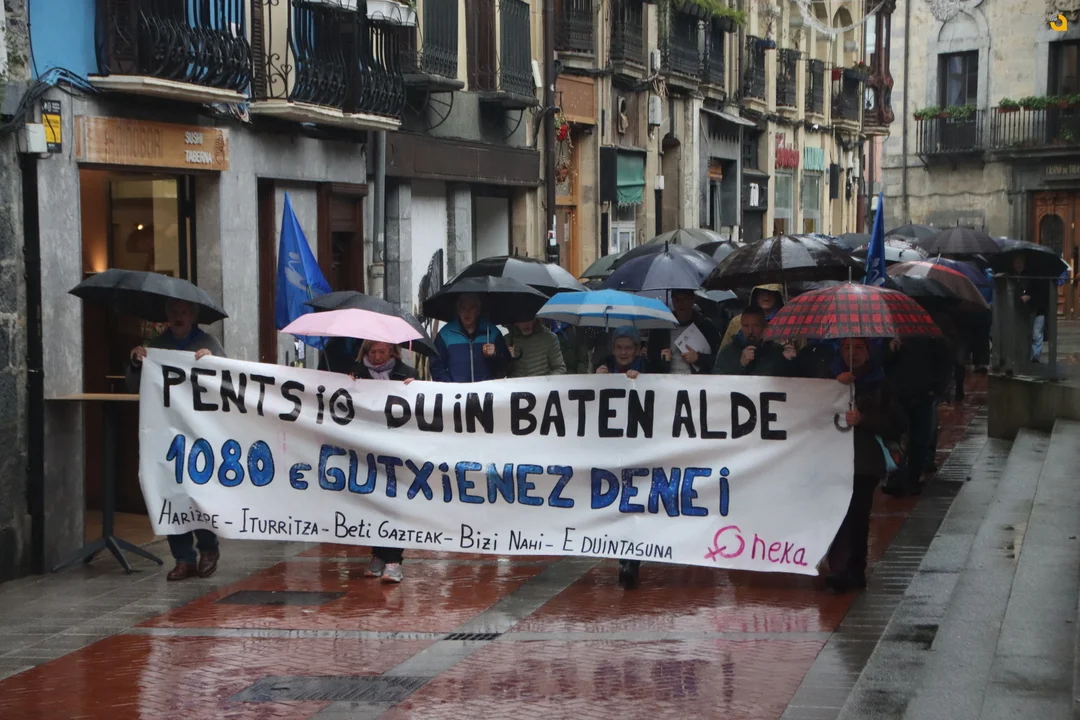 SUSHI
TABERNA
PENTSIO DUIN BATEN ALDE
1080 € GUTXIENEZ DENEI
HARIZPE - ITURRITZA - BETI GAZTEAK - BIZI NAHI - E DUINTASUNA
Oneka